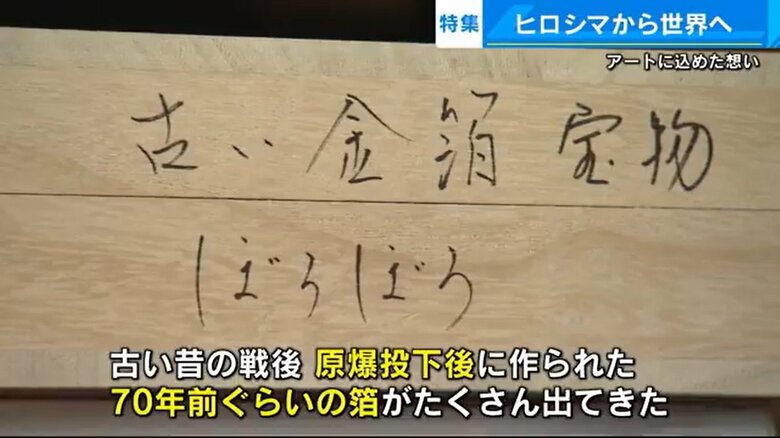 特集 ヒロシマから世界へ
アートに込めた想い
古い金箔 宝物
ぼろぼろ
古い昔の戦後 原爆投下後に作られた
70年前ぐらいの箔がたくさん出てきた